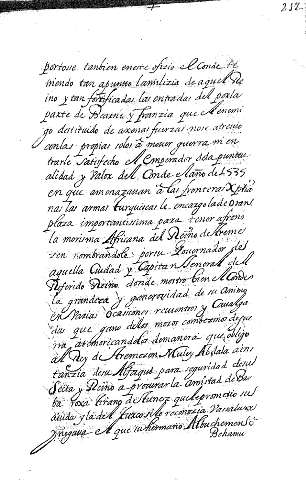 212
portose tanbien en este oficio el Conde te
niendo tan apunto la milizia de aquel Re
ino y tan fortificadas las entradas del por la
parte de Bearne y franzia que el enemi
go destituido de axenas fuerzas no se atrevio
con las propias solo a mover guerra ni en
trarle Satisfecho el Emperador de la puntu
alidad y valor del Conde el año de 1535
en que amenazavan a las fronteras
nas las armas turquescas le encargo la de Oran
plaza importantissima para tener a freno
la morisma Africana del Reyno de treme
sen nombrandole por su Governador de
aquella Ciudad y Capitan General del
Referido Reino donde mostro bien el Conde
la grandeza y generosidad de su animo
en varias ocasiones recuentros y Cavalga
das que gano de los moros
na, atemoriçandola de manera que obligo
al Rey de tremecen Muley a ins
tanzia de su para seguridad de su
Seita y Reyno a procurar la amistad de Bar
ba Roxa tirano de tunez que le prometio su
aiuda y la del turco si le reconozia Vasallaxe
y negava el que su hermano